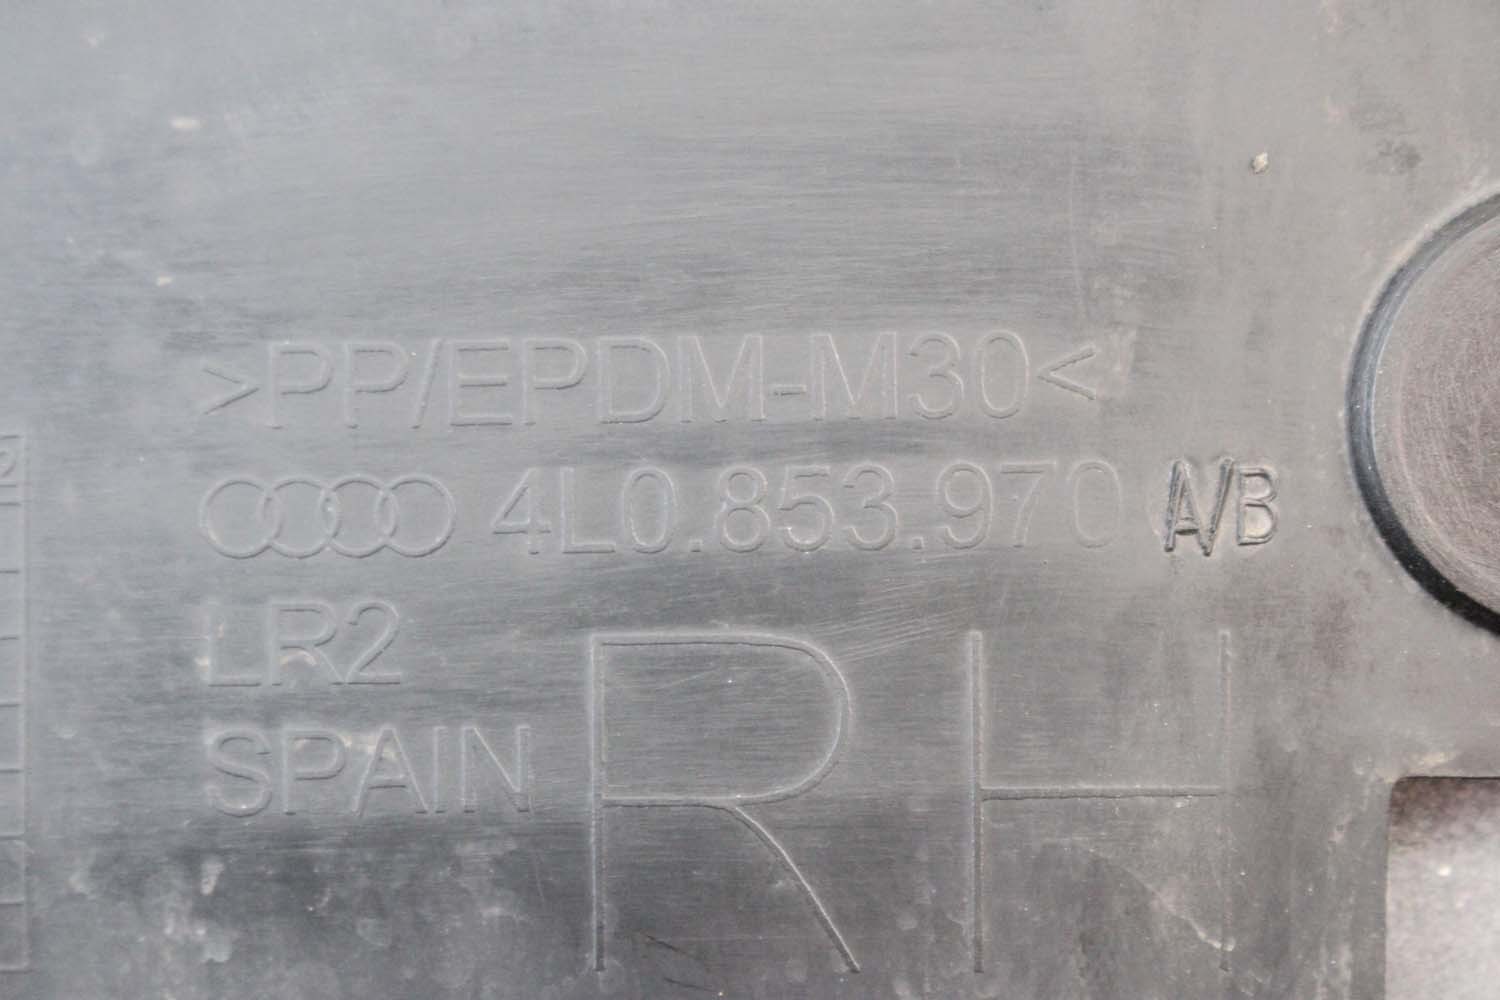 >PP/EPDM-M30<
4L0.853.970 A/B
LR2
SPAIN
RH